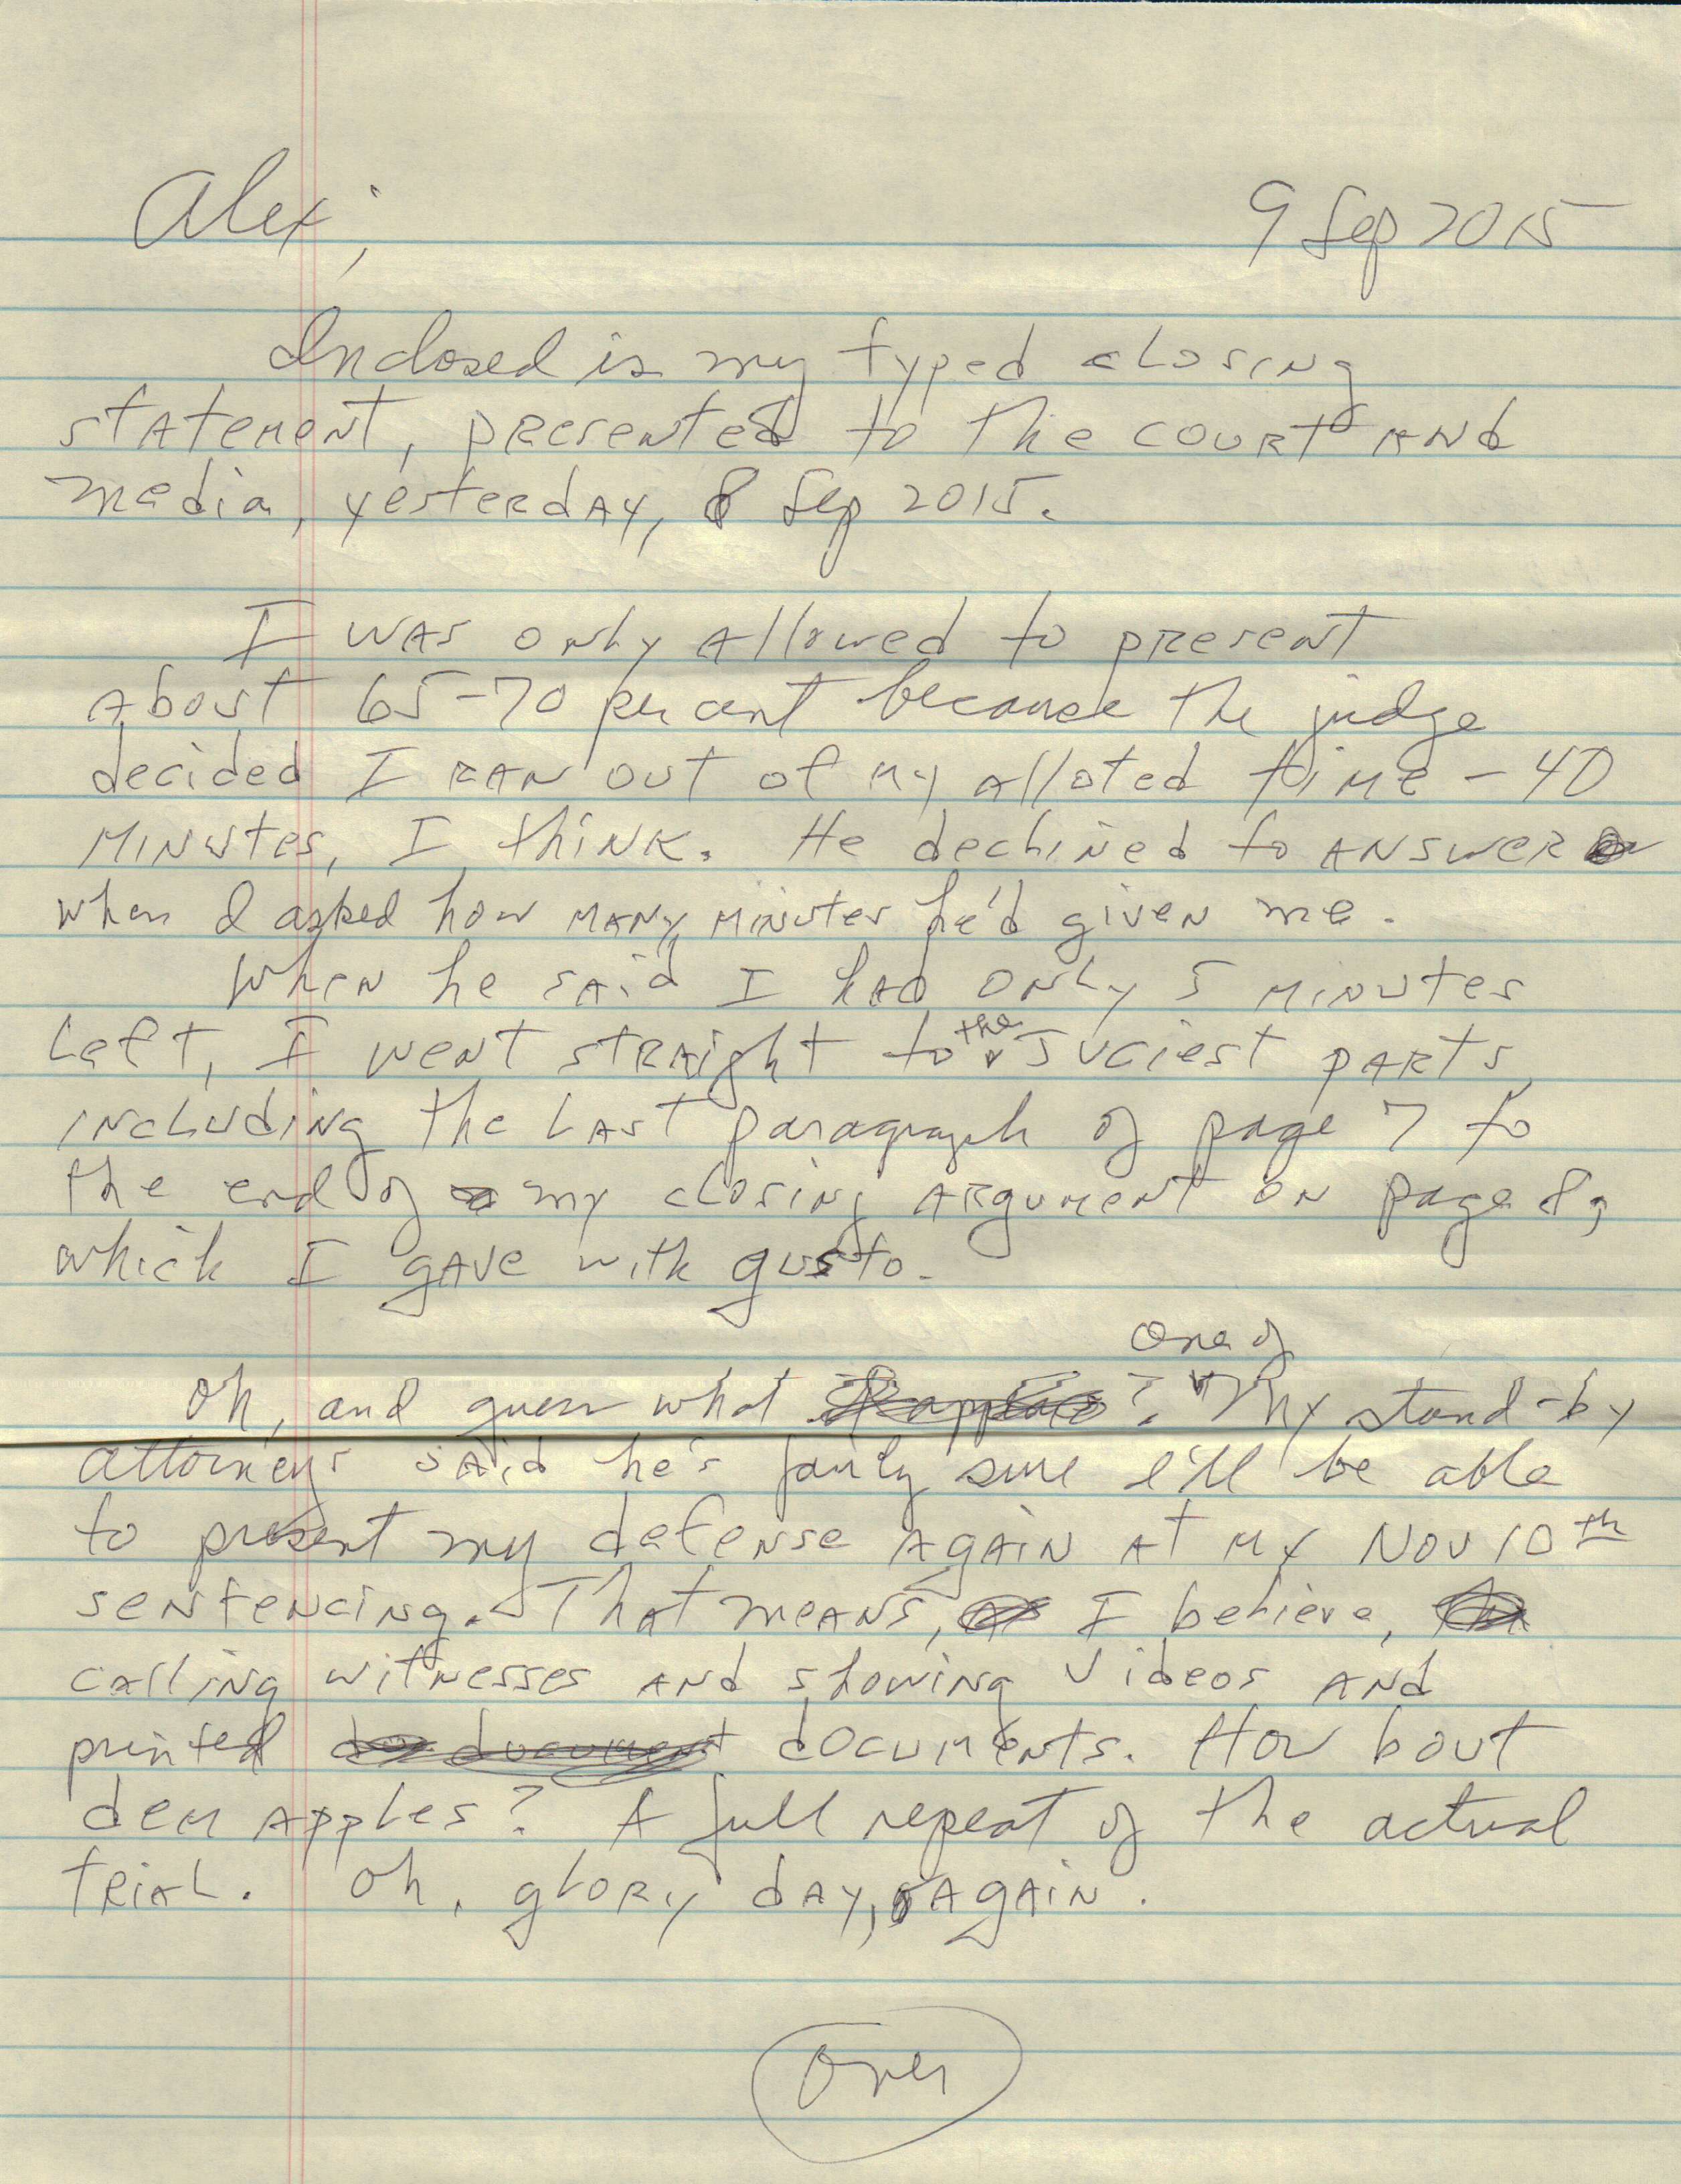 Alex;
9 Sep 2015
Inclosed is my typed closing
statement, presented to the court and
media, yesterday, 8 Sep 2015.
I was only allowed to present
about 65-70 per cent because the judge
decided I ran out of my alloted time - 40
minutes, I think. He declined to answer
when I asked how many minutes he'd given me.
When he said I had only 5 minutes
left, I went straight to the juciest parts,
including the last paragraph of page 7 to
the end of my closing argument on page 8,
which I gave with gusto.
Oh, and guess what? One of my stand-by
attorneys said he's fairly sure I'll be able
to present my defense again at my Nov 10th
sentencing. That means, I believe,
calling witnesses and showing videos and
printed documents. How bout
dem apples? A full repeat of the actual
trial. Oh, glory day, again.
Over